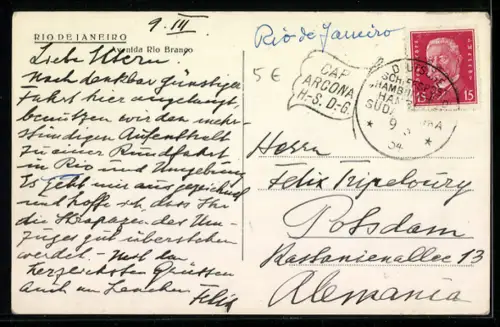 RIO DE JANEIRO
Avenida Rio Branco
9. III
Rio de Janeiro
5 €
Liebe Eltern.
Nach denkbar günstiger
Fahrt hier angelangt,
benutzen wir den mehr-
stündigen Aufenthalt
zu einer Rundfahrt
in Rio und Umgebung
Es geht mir ausgezeichnet
und hoffe ich, dass Ihr
die Strapazen des Um-
zuges gut überstehen
werdet. - Mit den
herzlichsten Grüssen
auch an
Felix
CAP
ARCONA
H.-S.D.-G.
DEUTSCHE
SCHIFFSPOST
HAMBURG
SÜDAMERIKA
* 9 3 *
34
15 15
Herrn
Felix
Potsdam
Kastanienallee 13
Alemania